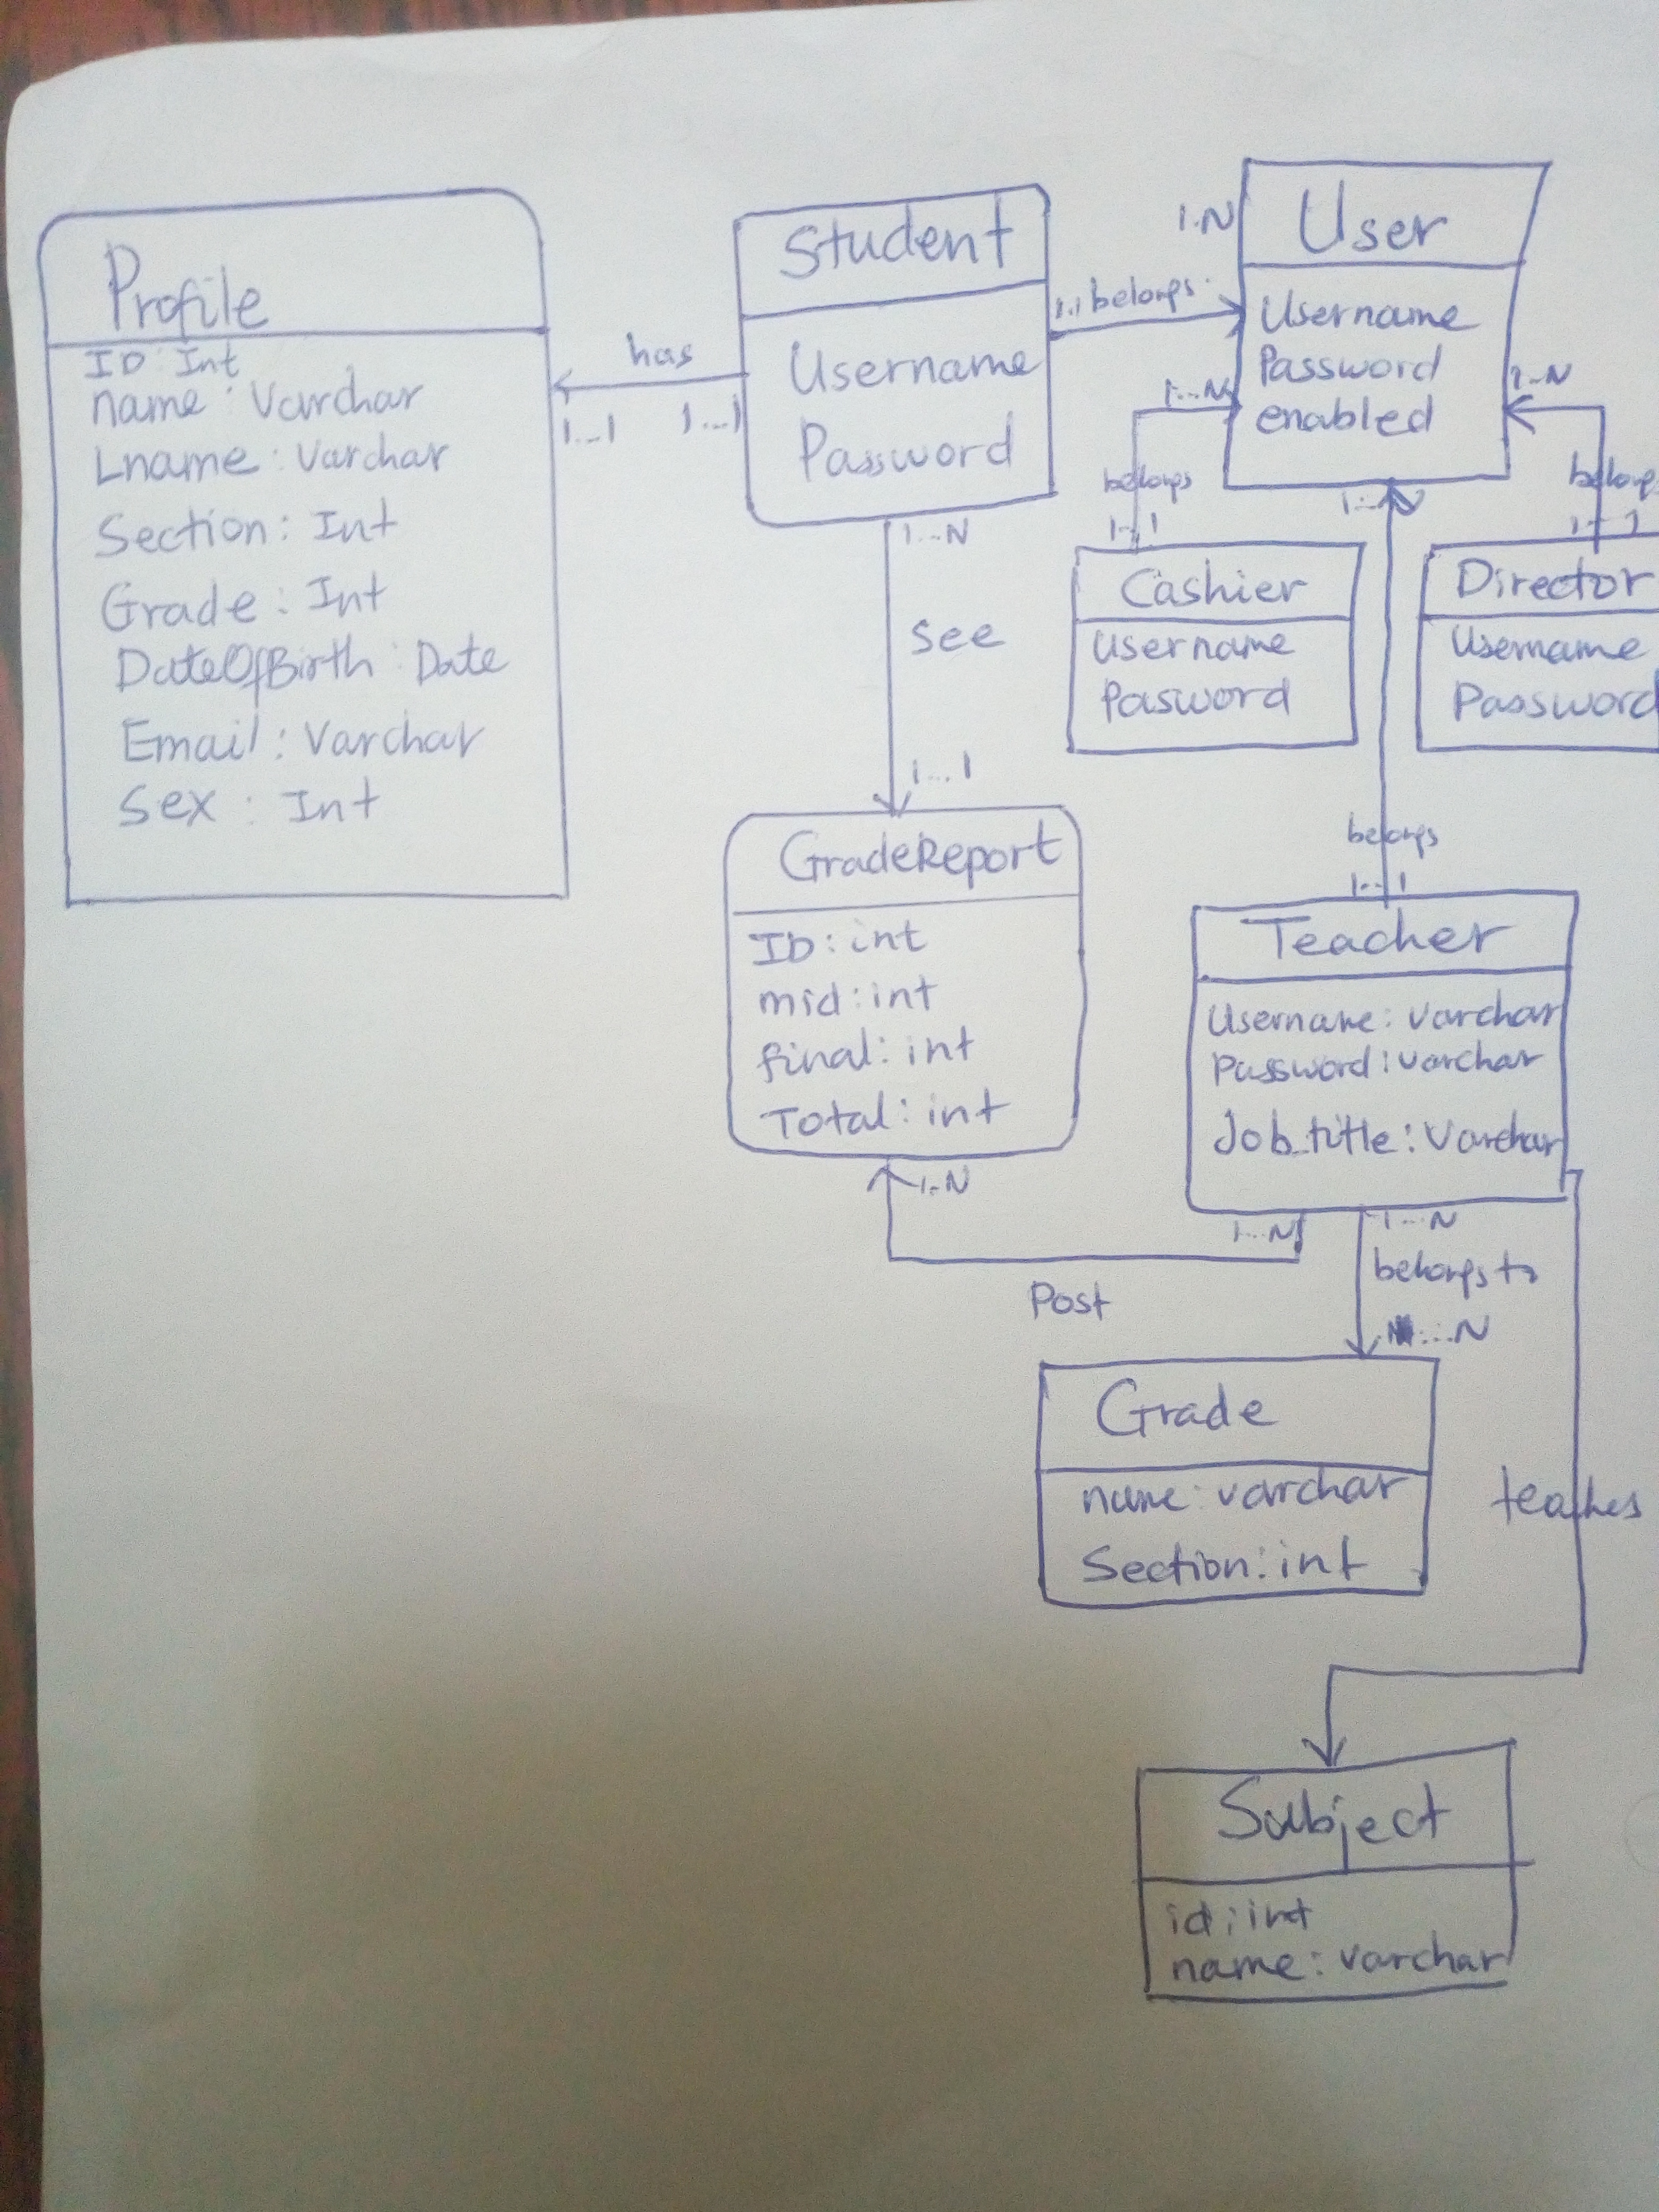 Profile
ID: Int
name: Varchar
Lname: Varchar
Section: Int
Grade: Int
DateOfBirth: Date
Email: Varchar
Sex: Int
has
1...1
1...1
Student
Username
Password
1..1 belongs
1.N
User
Username
Password
enabled
1...N
belongs
1..1
1..N
belongs
1..1
1..N
Cashier
Username
Pasword
Director
Username
Password
1...N
see
1...1
belongs
1..1
GradeReport
ID: int
mid: int
final: int
Total: int
1..N
Teacher
Username: varchar
Password: varchar
Job_title: Varchar
1...N
Post
1...N
belongs to
...N
Grade
name: varchar
Section: int
teaches
Subject
id: int
name: varchar